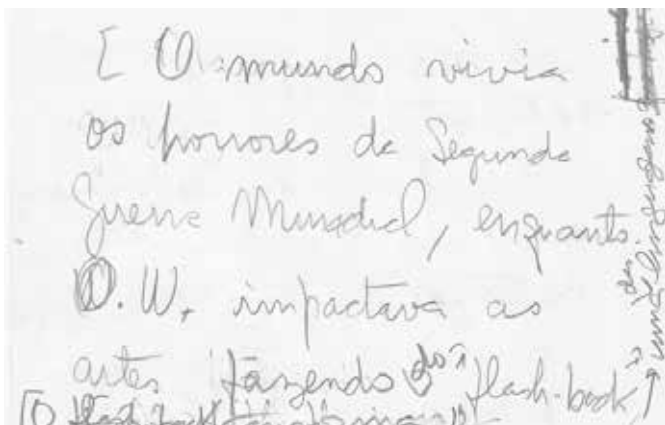 [ O mundo vivia
os horrores da Segunda
Guerra Mundial, enquanto
O. W. impactava as
artes fazendo do "flash-back"
uma das linguagens